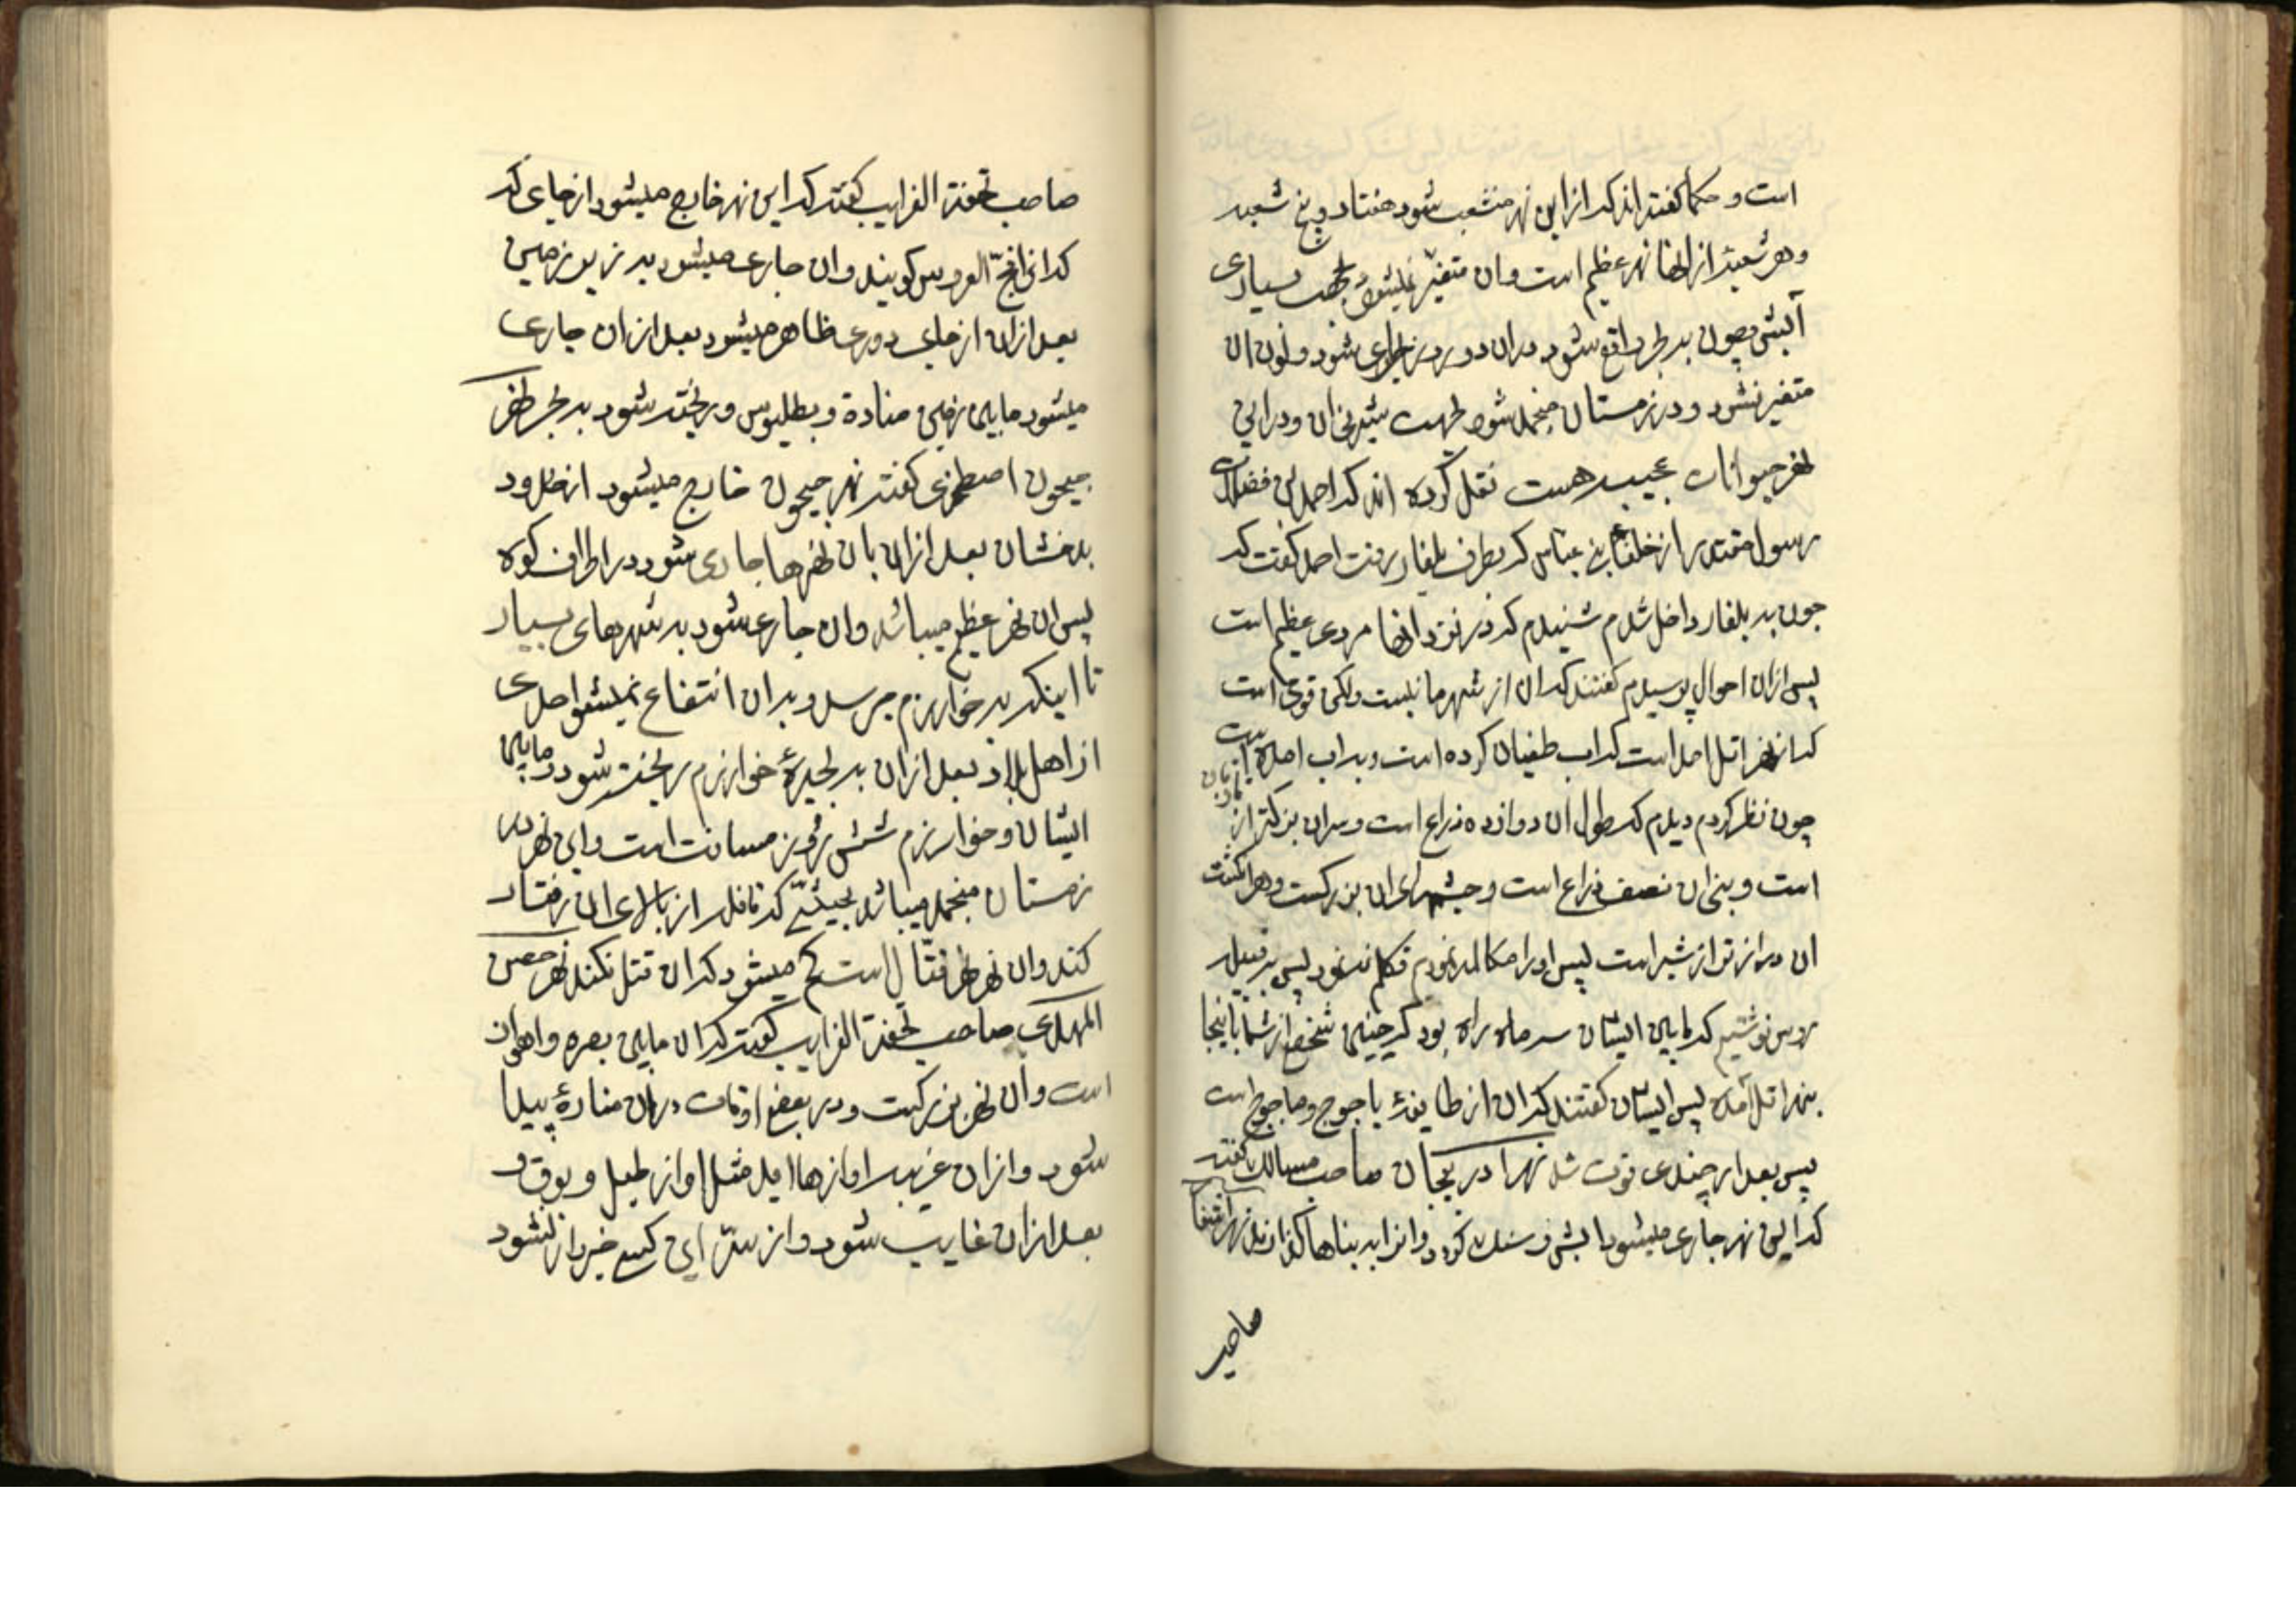 است و حکما گفته اند که از این نهر منشعب شود هفتاد و پنج شعبه
و هر شعبه از انها نهر عظیم است و ان متغیر نمیشود بجهت بسیاری
آبش و چون به بحر واقع شود دران دو روزه جاری شود و لون ان
متغیر نشود و در زمستان منجمد شود بجهت شیرینی ان و در این
نهر حیوانات عجیبه هست نقل کرده اند که احمد بن فضلان
رسول مقتدر از خلفای بنی عباس که بطرف بلغار رفت احمد گفت که
چون به بلغار داخل شدم شنیدم که در نزد انها مردی عظیم است
پس ازان احوال پرسیدم گفتند که ان از شهر ما نیست ولکن قوی است
که از نهر اتل امد است که اب طغیان کرده است و به اب امده است
چون نظر کردم دیدم که طول ان دوازده ذراع است و سر ان بزرگتر از
است و بینی ان نصف ذراع است و چشمهای ان بزرگست و هر انگشت
ان دراز تر از شبر است پس او را مکالمه نمودم تکلم ننمود پس به قبیله
روس نوشتیم که مابین ایشان سه ماه راه بود که چنین شخصی از شما باینجا
بنهر اتل آمده پس ایشان گفتند که ان از طایفهٔ یاجوج و ماجوج است
پس بعد از چندی فوت شد نهر اذربیجان صاحب مسالک گفته
که این نهر جاری میشود ابش و سنک گردد و انرا به بناها گذارند نهر
صاحب
صاحب تحفة الغرایب گفته که این نهر خارج میشود از جای که
که انرا فج العروس گویند و ان جاری میشود به زیر زمین
بعد ازان از جای دوری ظاهر میشود بعد ازان جاری
میشود مابین زمین مناده و بطلیوس و ریخته شود به بحر نهر
جیحون اصطخری گفته نهر جیحون خارج میشود از حدود
بدخشان بعد ازان بان نهرها جاری شود در اطراف کوه
پس ان نهر عظیم میباشد و ان جاری شود به شهرهای بسیار
تا اینکه به خوارزم میرسد و بدان انتفاع نمیشود احدی
از اهل بلاد بعد ازان به بحیرهٔ خوارزم ریخته شود و مابین
ایشان و خوارزم شش روز مسافت است و این نهر در
زمستان منجمد میباشد بحیثیتی که قافله از بالای ان رفتار
کنند و ان نهر نهر قتال است کم میشود که ان قتل نکند نهر حصن
المهدی صاحب تحفة الغرایب گفته که ان مابین بصره و اهواز
است و ان نهر بزرگست و در بعضی اوقات دران منارهٔ پیدا
شود و ازان غریب اوازها اید مثل اواز طبل و بوق و
بعد ازان غایب شود و از سر این کسی خبردار نشود